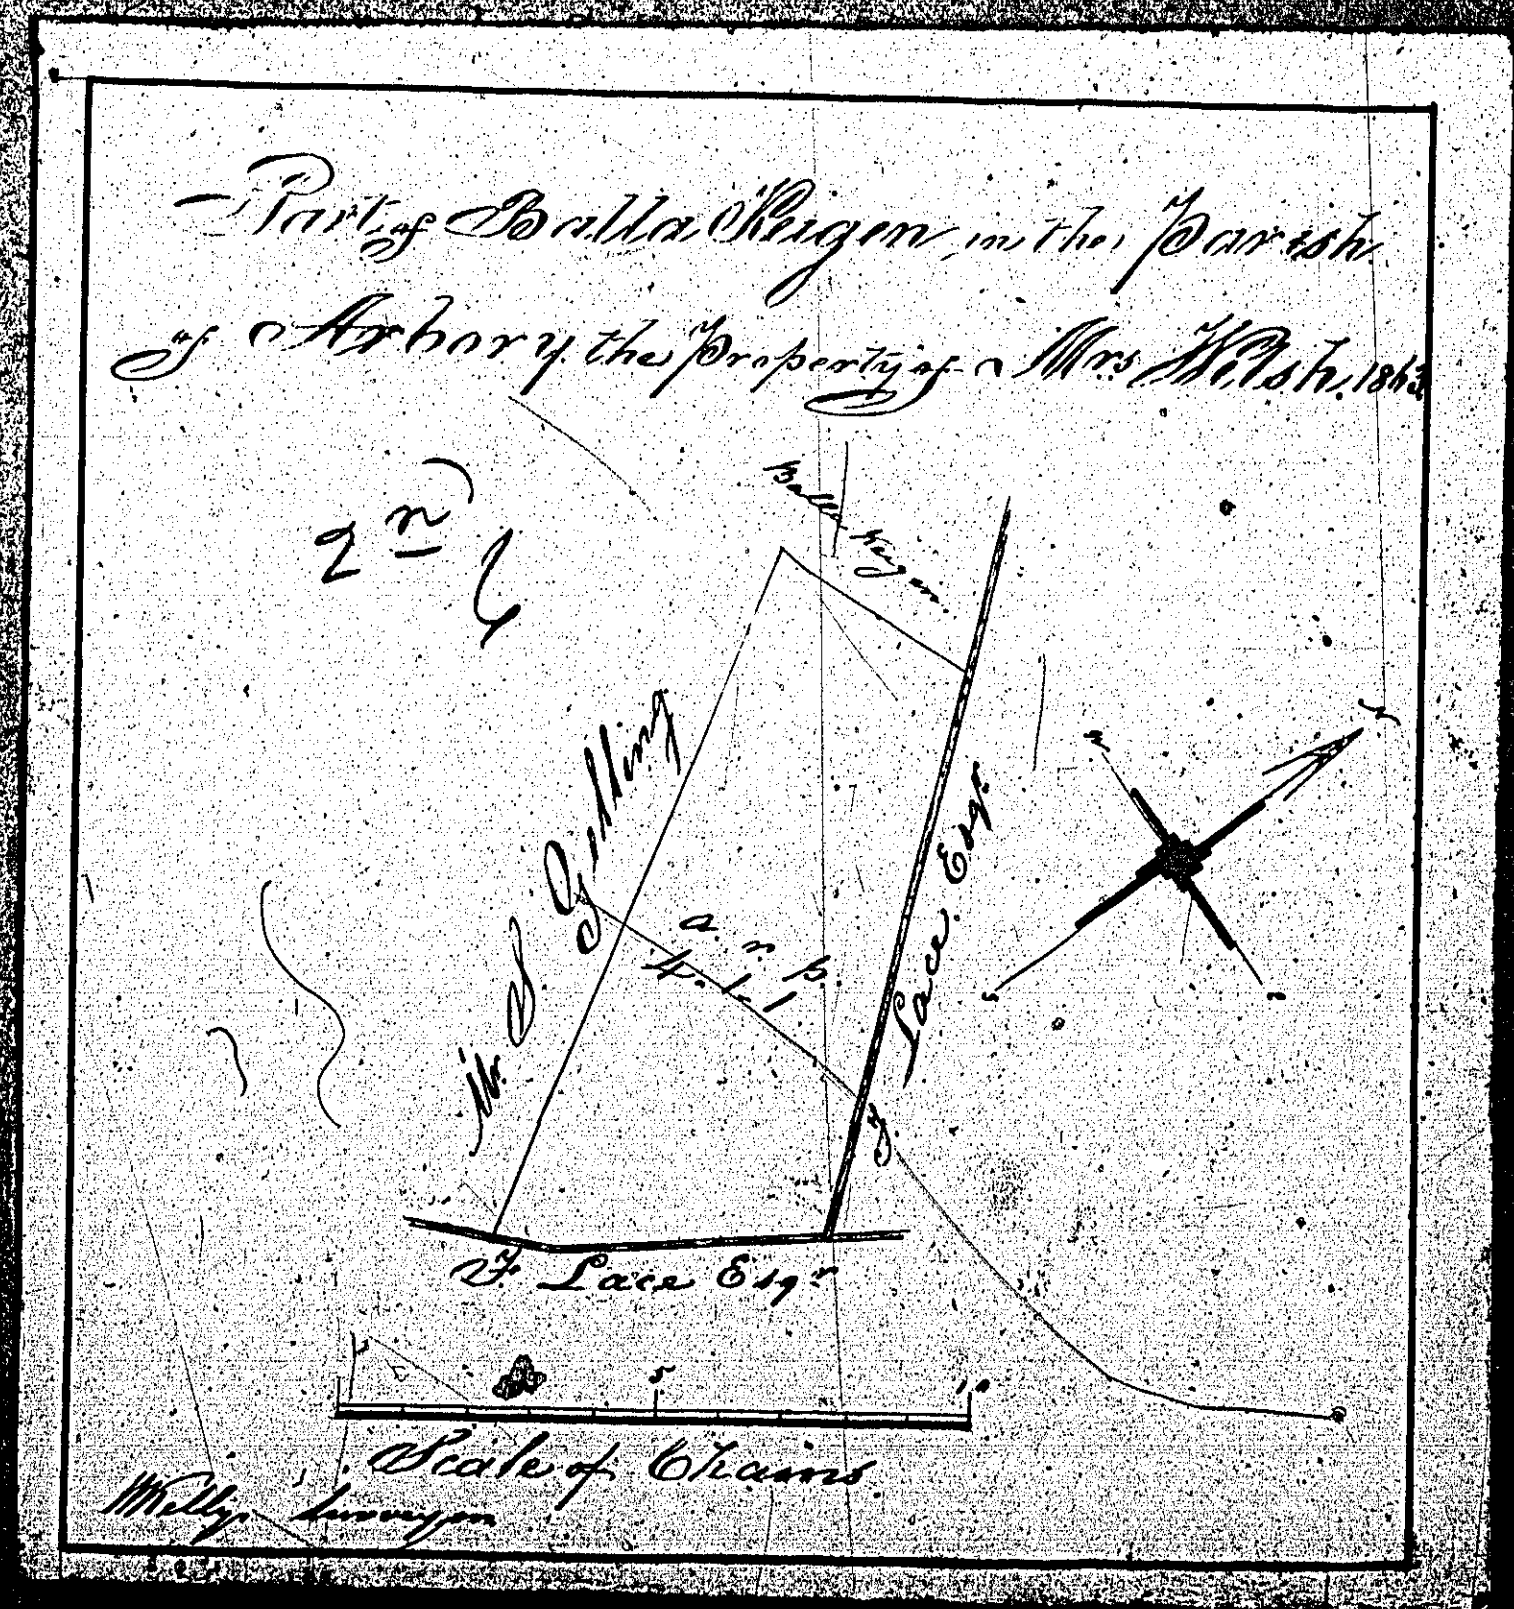 Part of Balla Keigen in the Parish
of Arbory the Property of Mrs Welsh. 1863
2n
Balla Keigen.
Mr S Gelling
a. r. p.
4. 1. 1
F. Lace. Esqr.
F. Lace Esqr
5 10
Scale of Chains
W Kelly. Surveyor